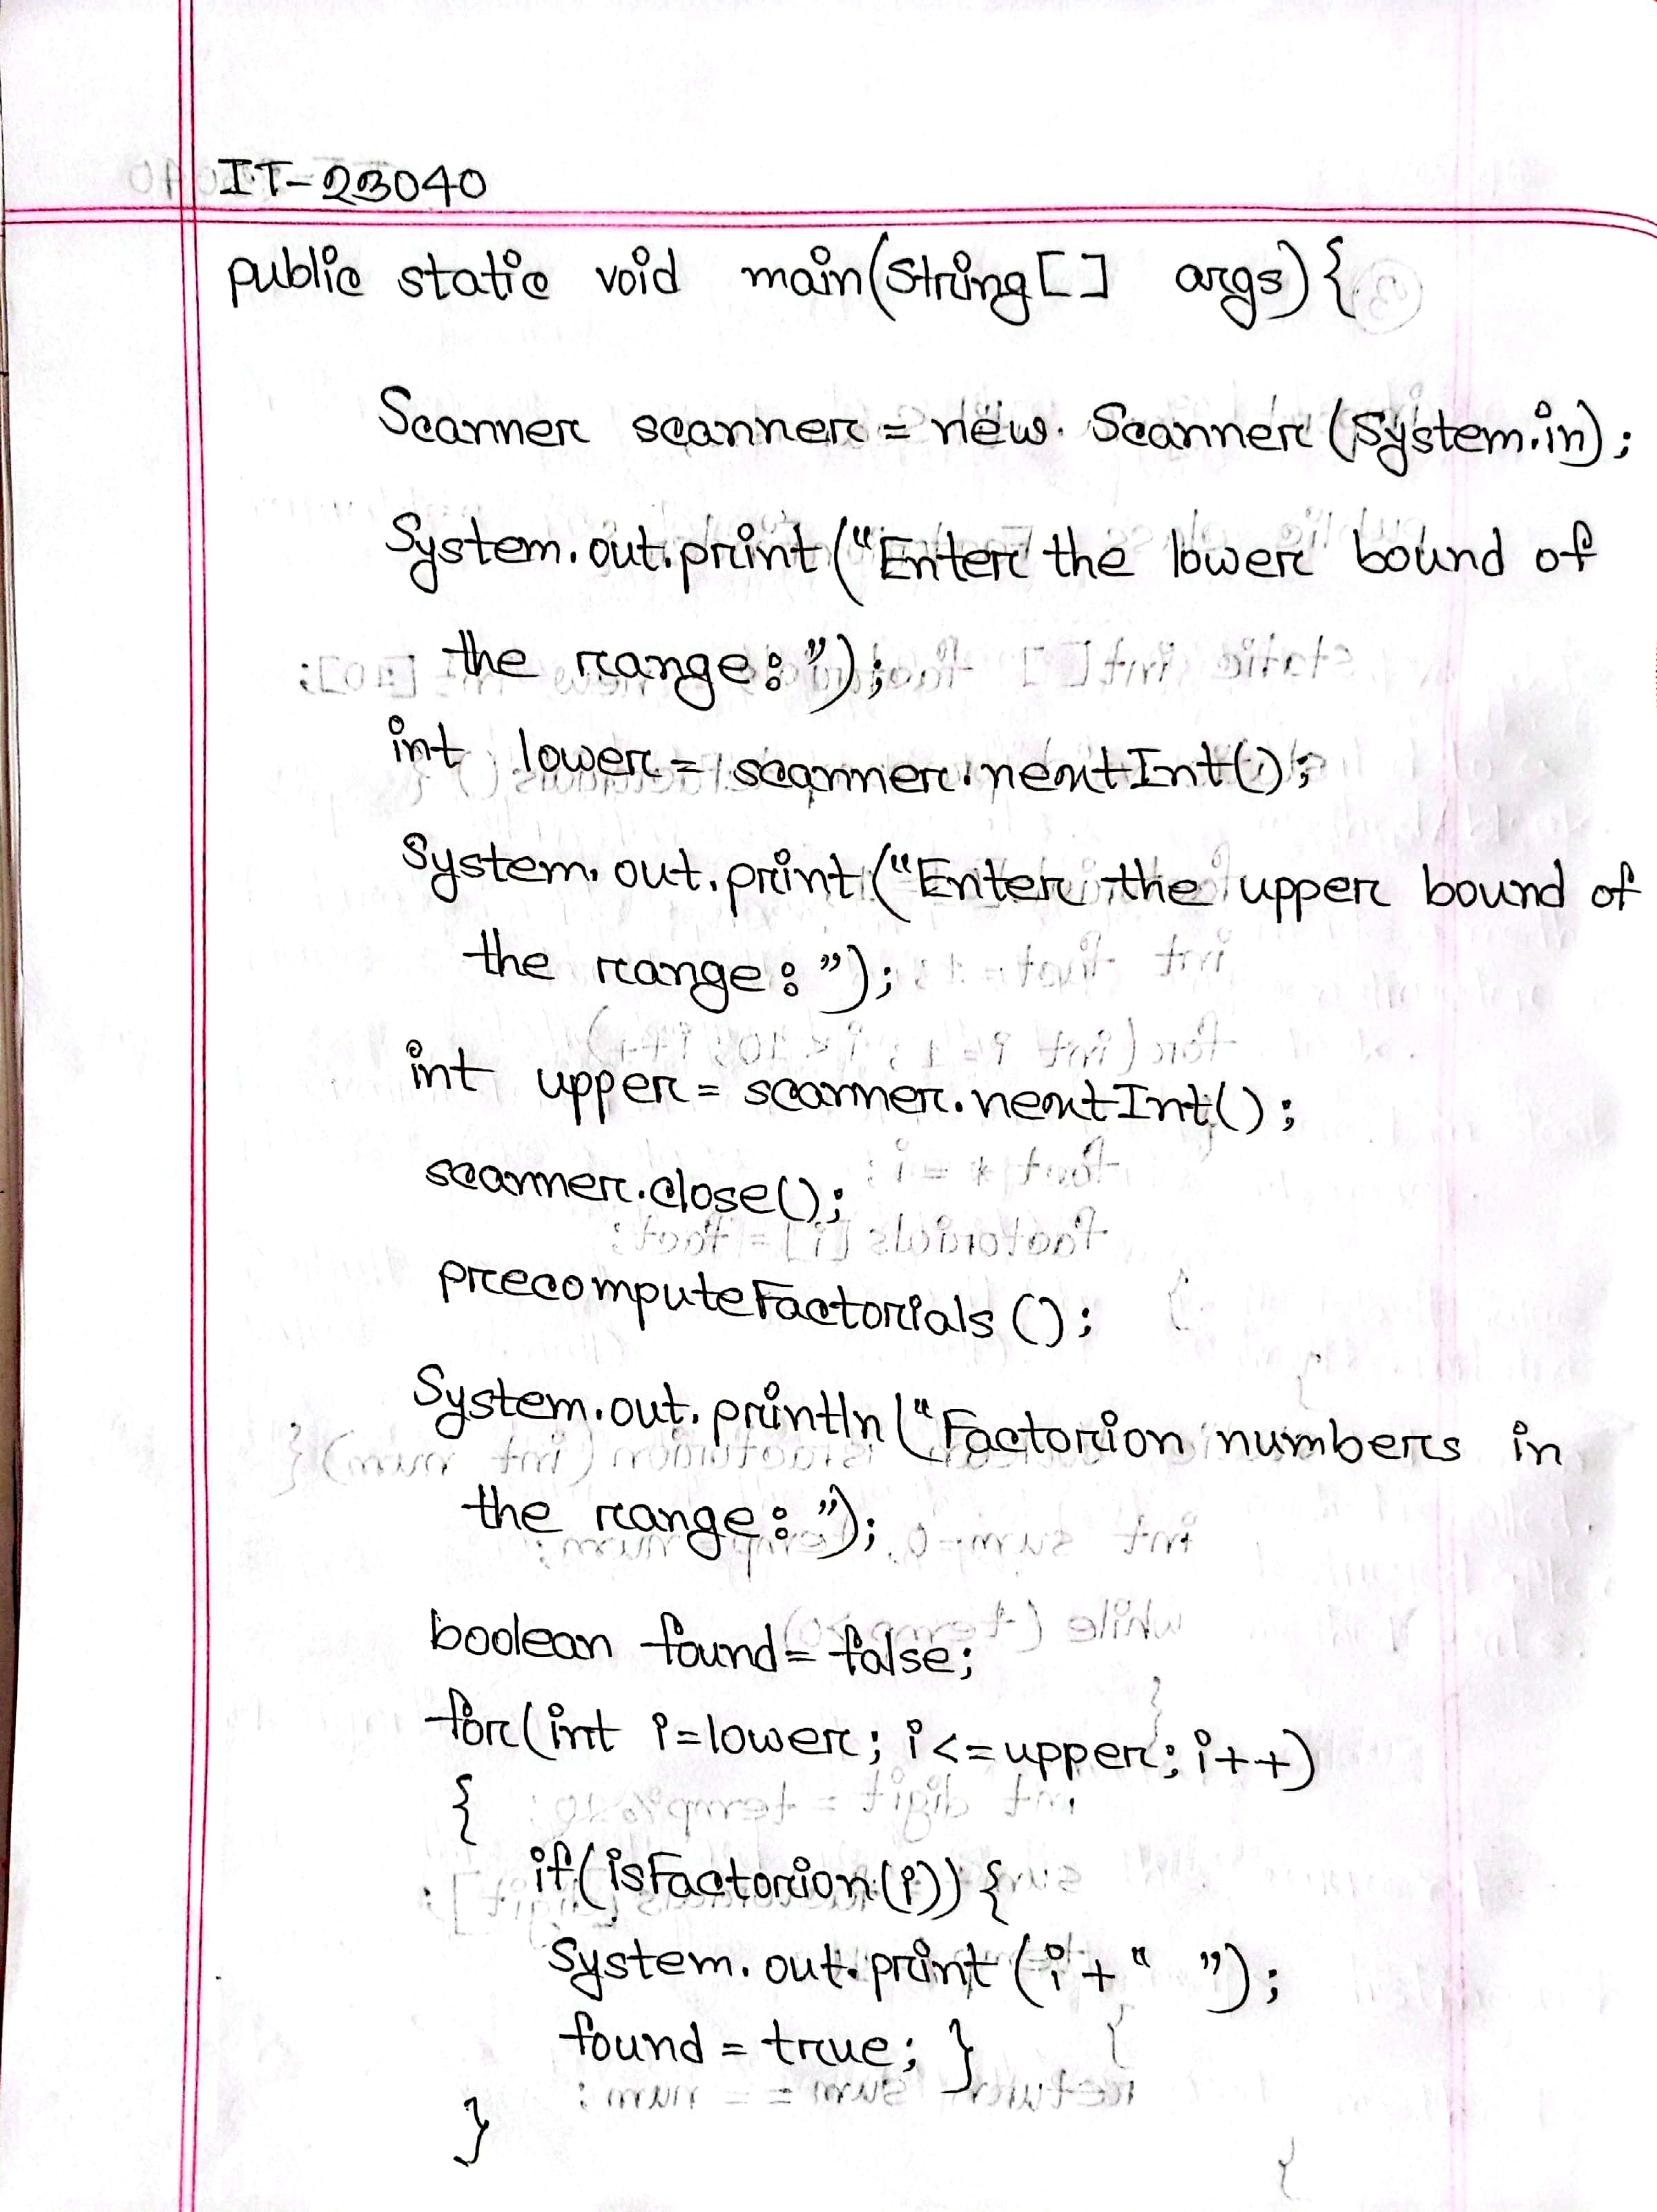 IT-23040
public static void main(String[] args){
Scanner scanner = new Scanner (System.in);
System.out.print("Enter the lower bound of
the range:");
int lower = scanner.nextInt();
System.out.print("Enter the upper bound of
the range:");
int upper = scanner.nextInt();
scanner.close();
precomputeFactorials ();
System.out.println("Factorion numbers in
the range:");
boolean found = false;
for(int i=lower; i<=upper; i++)
{
if(isFactorion(i)) {
System.out.print(i+" ");
found = true; }
}